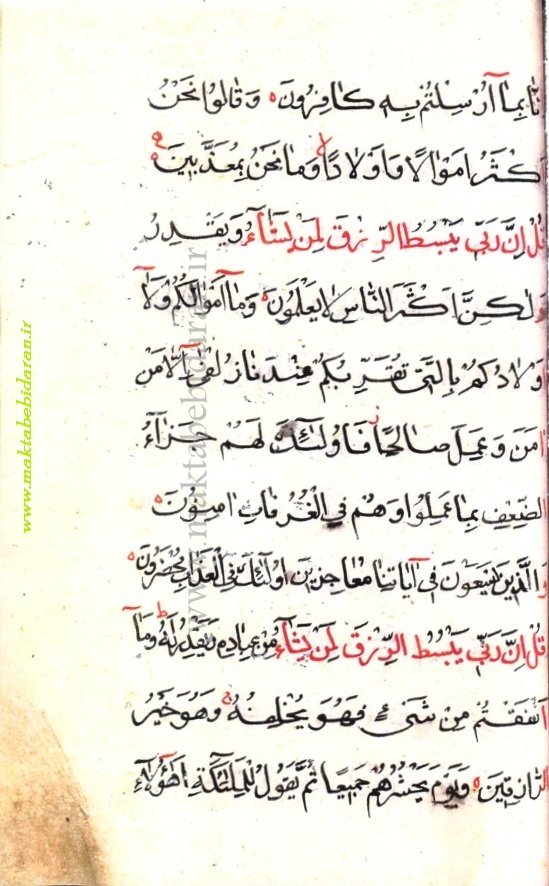 نّٰا بِمٰا اُرْسِلْتُمْ بِهِ كٰافِرُونَ وَقٰالُوا نَحْنُ
اَكْثَرُ اَمْوٰالًا وَاَوْلٰادًا وَمٰا نَحْنُ بِمُعَذَّبِينَ
قُلْ اِنَّ رَبِّي يَبْسُطُ الرِّزْقَ لِمَنْ يَشٰٓاءُ وَيَقْدِرُ
وَلٰكِنَّ اَكْثَرَ النّٰاسِ لٰا يَعْلَمُونَ وَمٰٓا اَمْوٰالُكُمْ وَلٰٓا
اَوْلٰادُكُمْ بِالَّتِي تُقَرِّبُكُمْ عِنْدَنٰا زُلْفىٰٓ اِلّٰا مَنْ
اٰمَنَ وَعَمِلَ صٰالِحًا فَاُولٰئِكَ لَهُمْ جَزٰٓاءُ
الضِّعْفِ بِمٰا عَمِلُوا وَهُمْ فِي الْغُرُفٰاتِ اٰمِنُونَ
وَالَّذِينَ يَسْعَوْنَ فِي اٰيٰاتِنٰا مُعٰاجِزِينَ اُولٰئِكَ فِي الْعَذٰابِ مُحْضَرُونَ
قُلْ اِنَّ رَبِّي يَبْسُطُ الرِّزْقَ لِمَنْ يَشٰٓاءُ مِنْ عِبٰادِهِ وَيَقْدِرُ لَهُ وَمٰٓا
اَنْفَقْتُمْ مِنْ شَيْءٍ فَهُوَ يُخْلِفُهُ وَهُوَ خَيْرُ
الرّٰازِقِينَ وَيَوْمَ يَحْشُرُهُمْ جَمِيعًا ثُمَّ يَقُولُ لِلْمَلٰئِكَةِ اَهٰٓؤُلٰٓاءِ
www.maktabebidaran.ir
www.maktabebidaran.ir